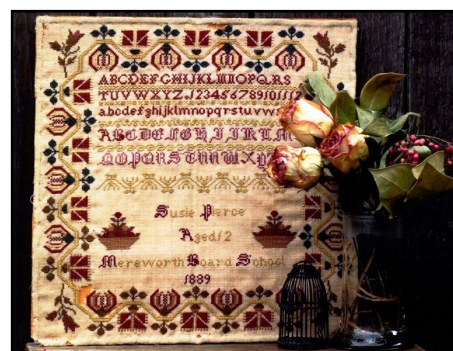 ABCDEFGHIJKLMNOPQRS
TUVWXYZ.1234567891011
abcdefghijklmnopqrstuvw
ABCDEFGHIJKLM
NOPQRSTUVWXY
Susie Pierce
Aged 12
Mereworth Board School
1889